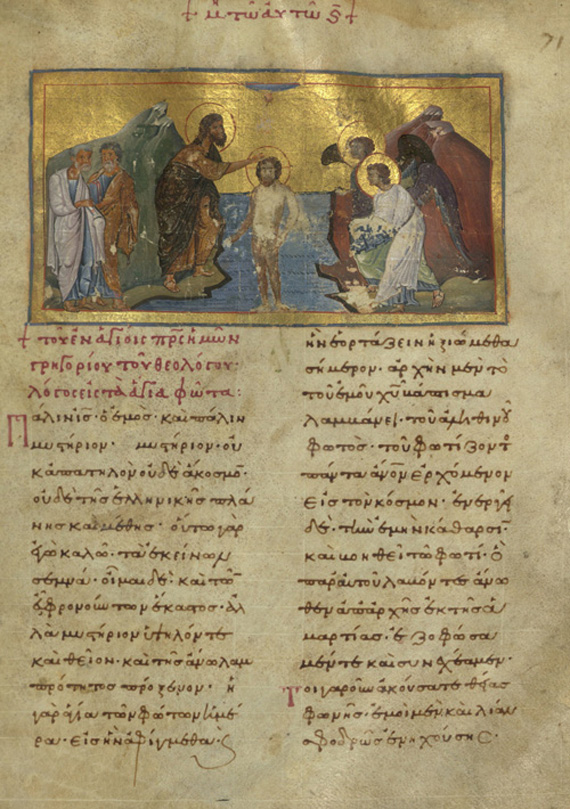 + Μ τῶ αὐτῶ ϛ +
71
+ τοῦ ἐν ἁγίοις πρς ἡμῶν
γρηγορίου τοῦ θεολόγου·
λόγος εἰς τὰ ἅγια φῶτα:
Παλιν ις ὁ ἐμὸς· καὶ πάλιν
μυστήριον· μυστήριον οὐ
κ ἀπατηλὸν οὐδὲ ἄκοσμον·
οὐδὲ τῆς ἑλληνικῆς πλά
νης καὶ μέθης· οὕτω γὰρ
ἐγὼ καλῶ· τὰ ἐκείνων
σεμνά· οἶμαι δὲ· καὶ τῶν
εὖ φρονούντων ἕκαστος· ἀλ
λὰ μυστήριον ὑψηλόν τε
καὶ θεῖον· καὶ τῆς ἄνω λαμ
πρότητος πρόξενον· ἡ
γὰρ ἁγία τῶν φώτων ἡμέ
ρα· εἰς ἣν ἀφίγμεθα· ϛ
ἣν ἑορτάζειν ἠξιώμεθα
σήμερον· ἀρχὴν μὲν τὸ
τοῦ ἐμοῦ χυ βάπτισμα
λαμβάνει· τοῦ ἀληθινοῦ
φωτὸς· τοῦ φωτίζοντος
πάντα ἄνον ἐρχόμενον
εἰς τὸν κόσμον· ἐνεργεῖ
δὲ· τὴν ἐμὴν κάθαρσιν·
καὶ βοηθεῖ τῶ φωτί· ὃ
παρ' αὐτοῦ λαβόντες ἄνω
θεν ἀπ' ἀρχῆς ἐκ τῆς ἁ
μαρτίας· ἐζοφώσα
μέν τε καὶ συνεχέαμεν·
Τοιγαροῦν ἀκούσατε θείας
φωνῆς· ἐμοὶ μὲν καὶ λίαν
σφοδρῶς ἐνηχούσης·